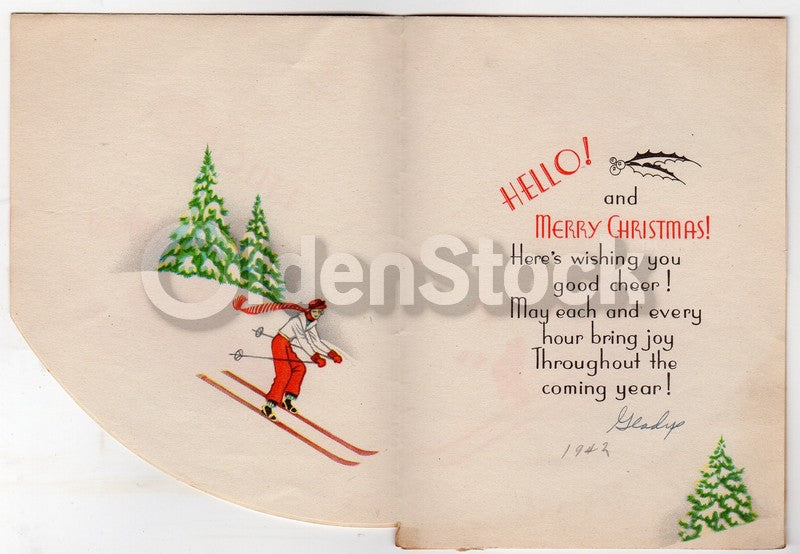 HELLO!
and
MERRY CHRISTMAS!
Here's wishing you
good cheer!
May each and every
hour bring joy
Throughout the
coming year!
Gladys
1942
OldenStock